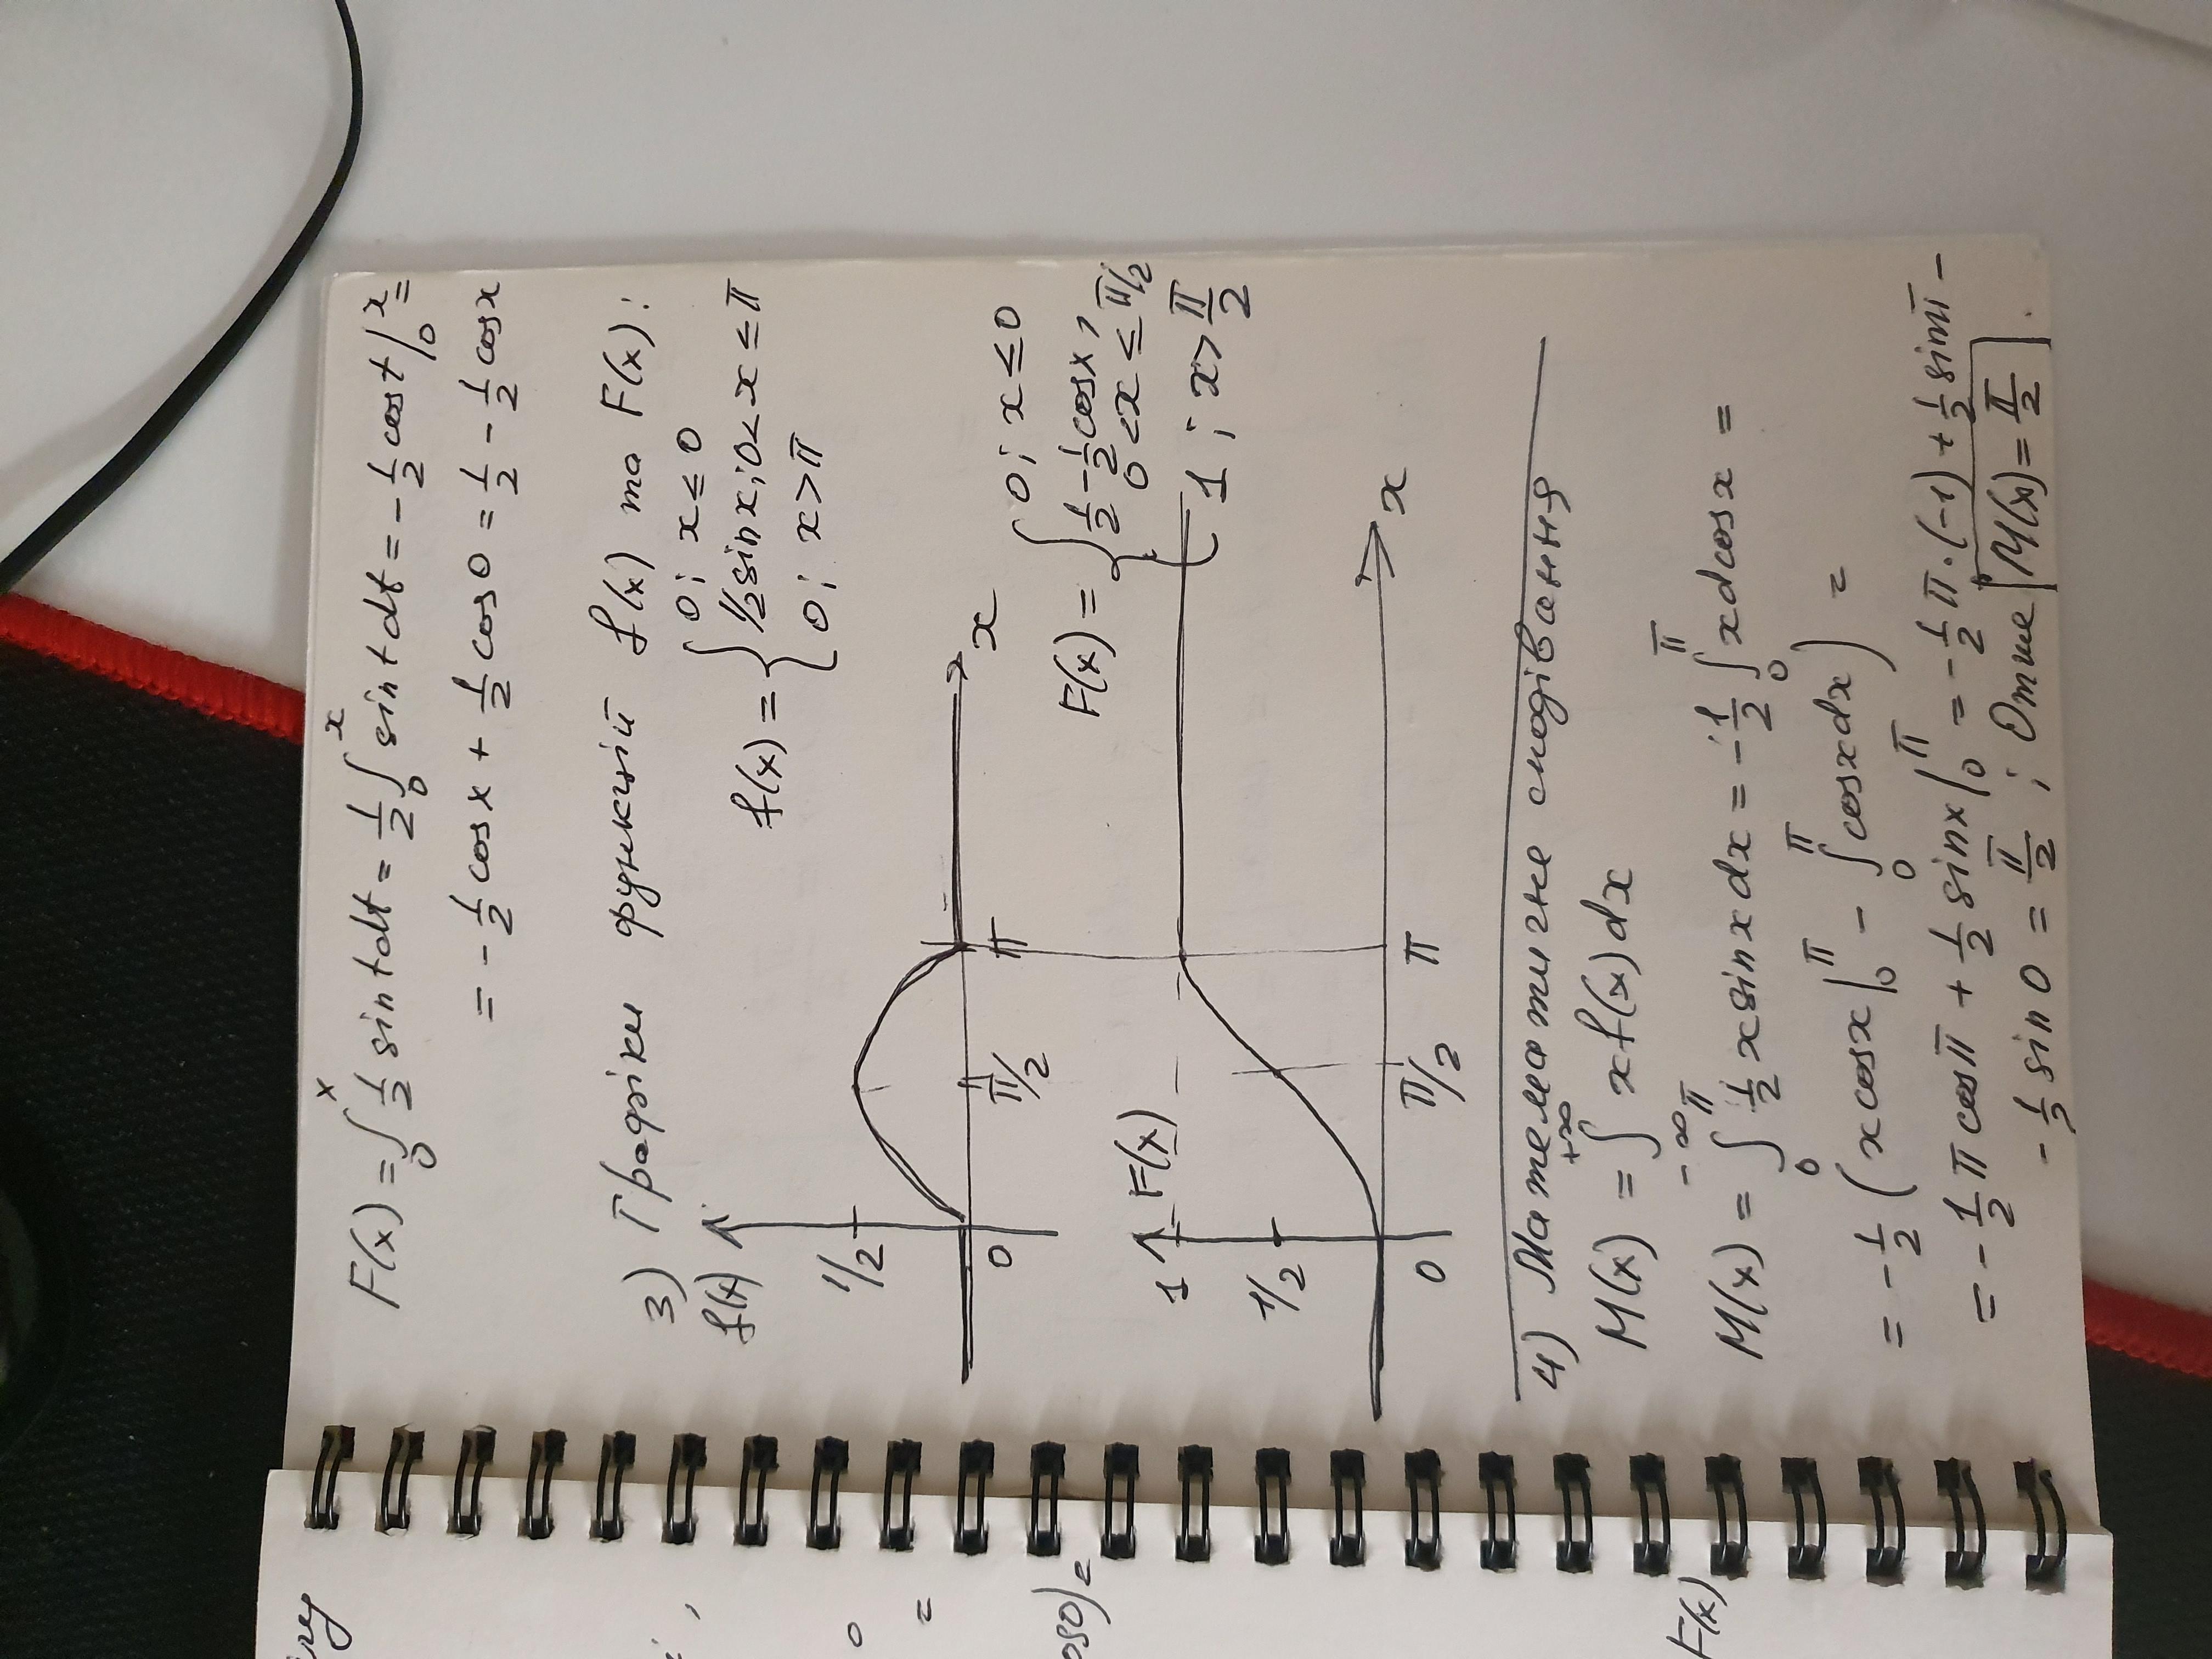 F(x) = ∫₀ˣ 1/2 sin t dt = 1/2 ∫₀ˣ sin t dt = - 1/2 cos t |₀ˣ =
= - 1/2 cos x + 1/2 cos 0 = 1/2 - 1/2 cos x
3) Графіки функцій f(x) та F(x):
f(x) = { 0; x ≤ 0
1/2 sin x; 0 < x ≤ π
0; x > π
f(x)
1/2
0
π/2
π
x
F(x) = { 0; x ≤ 0
1/2 - 1/2 cos x,
0 < x ≤ π/2
1; x > π/2
F(x)
1
1/2
0
π/2
π
x
4) Математичне сподівання
M(x) = ∫₋∞⁺∞ x f(x) dx
M(x) = ∫₀^π 1/2 x sin x dx = - 1/2 ∫₀^π x d cos x =
= - 1/2 ( x cos x |₀^π - ∫₀^π cos x dx ) =
= - 1/2 π cos π + 1/2 sin x |₀^π = - 1/2 π · (-1) + 1/2 sin π -
- 1/2 sin 0 = π/2 ; Отже M(x) = π/2 .
,
0
=
cos0) =
F(x)